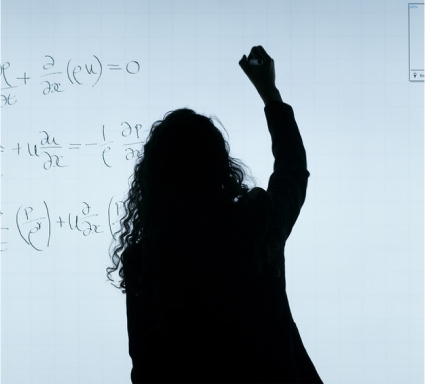 ∂ρ/∂t + ∂/∂x (ρu) = 0
+ u ∂u/∂x = - 1/ρ ∂P/∂x
(P/ρ^γ) + u ∂/∂x (P